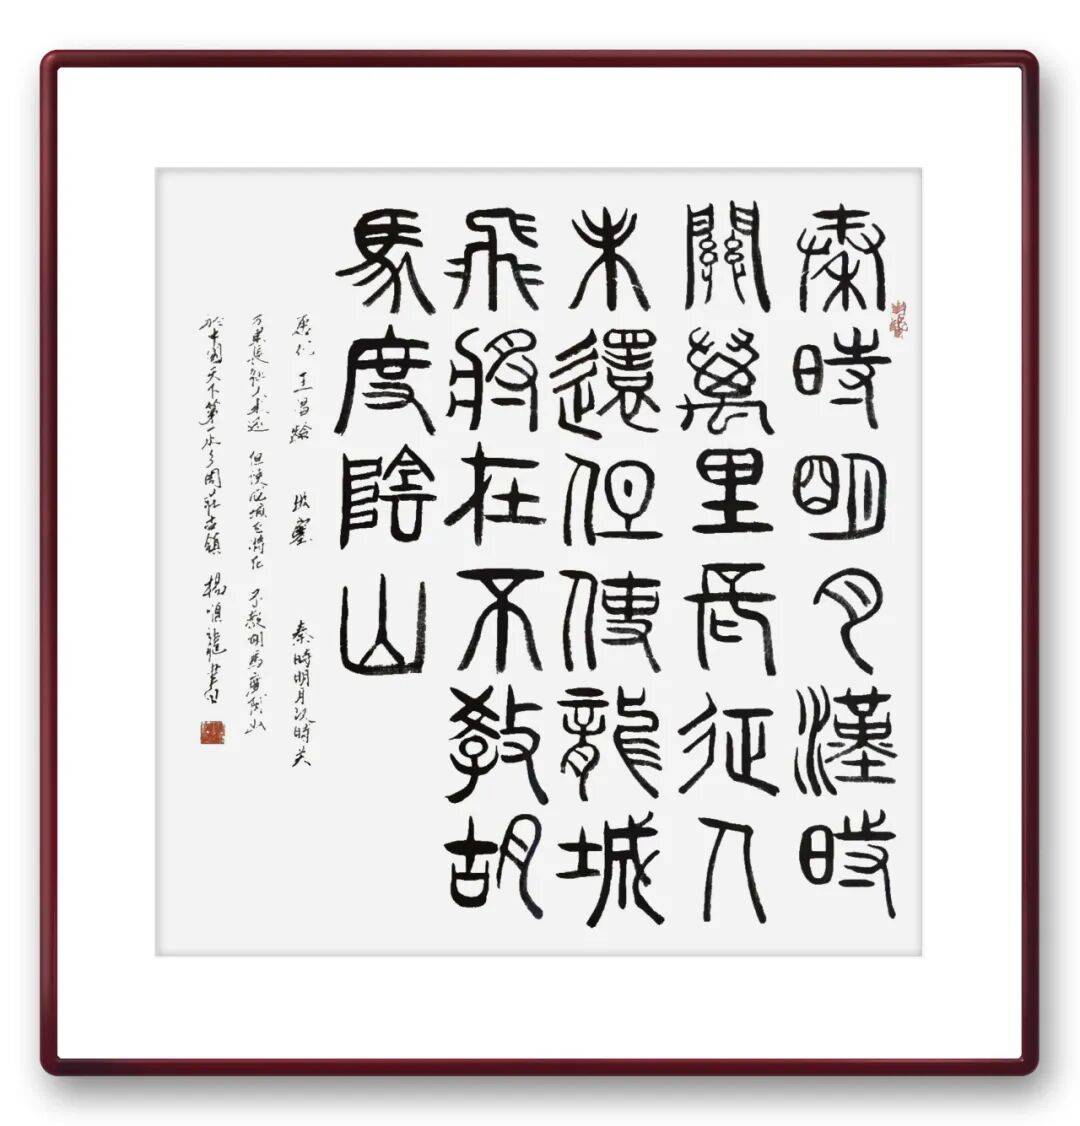 秦時明月漢時
關萬里長征人
未還但使龍城
飛將在不教胡
馬度陰山
唐代 王昌齡 出塞 秦時明月汉時关
万里長征人未還 但使龍城飛將在 不教胡馬度陰山
於中國天下第一水乡周莊古鎮 楊順龍書